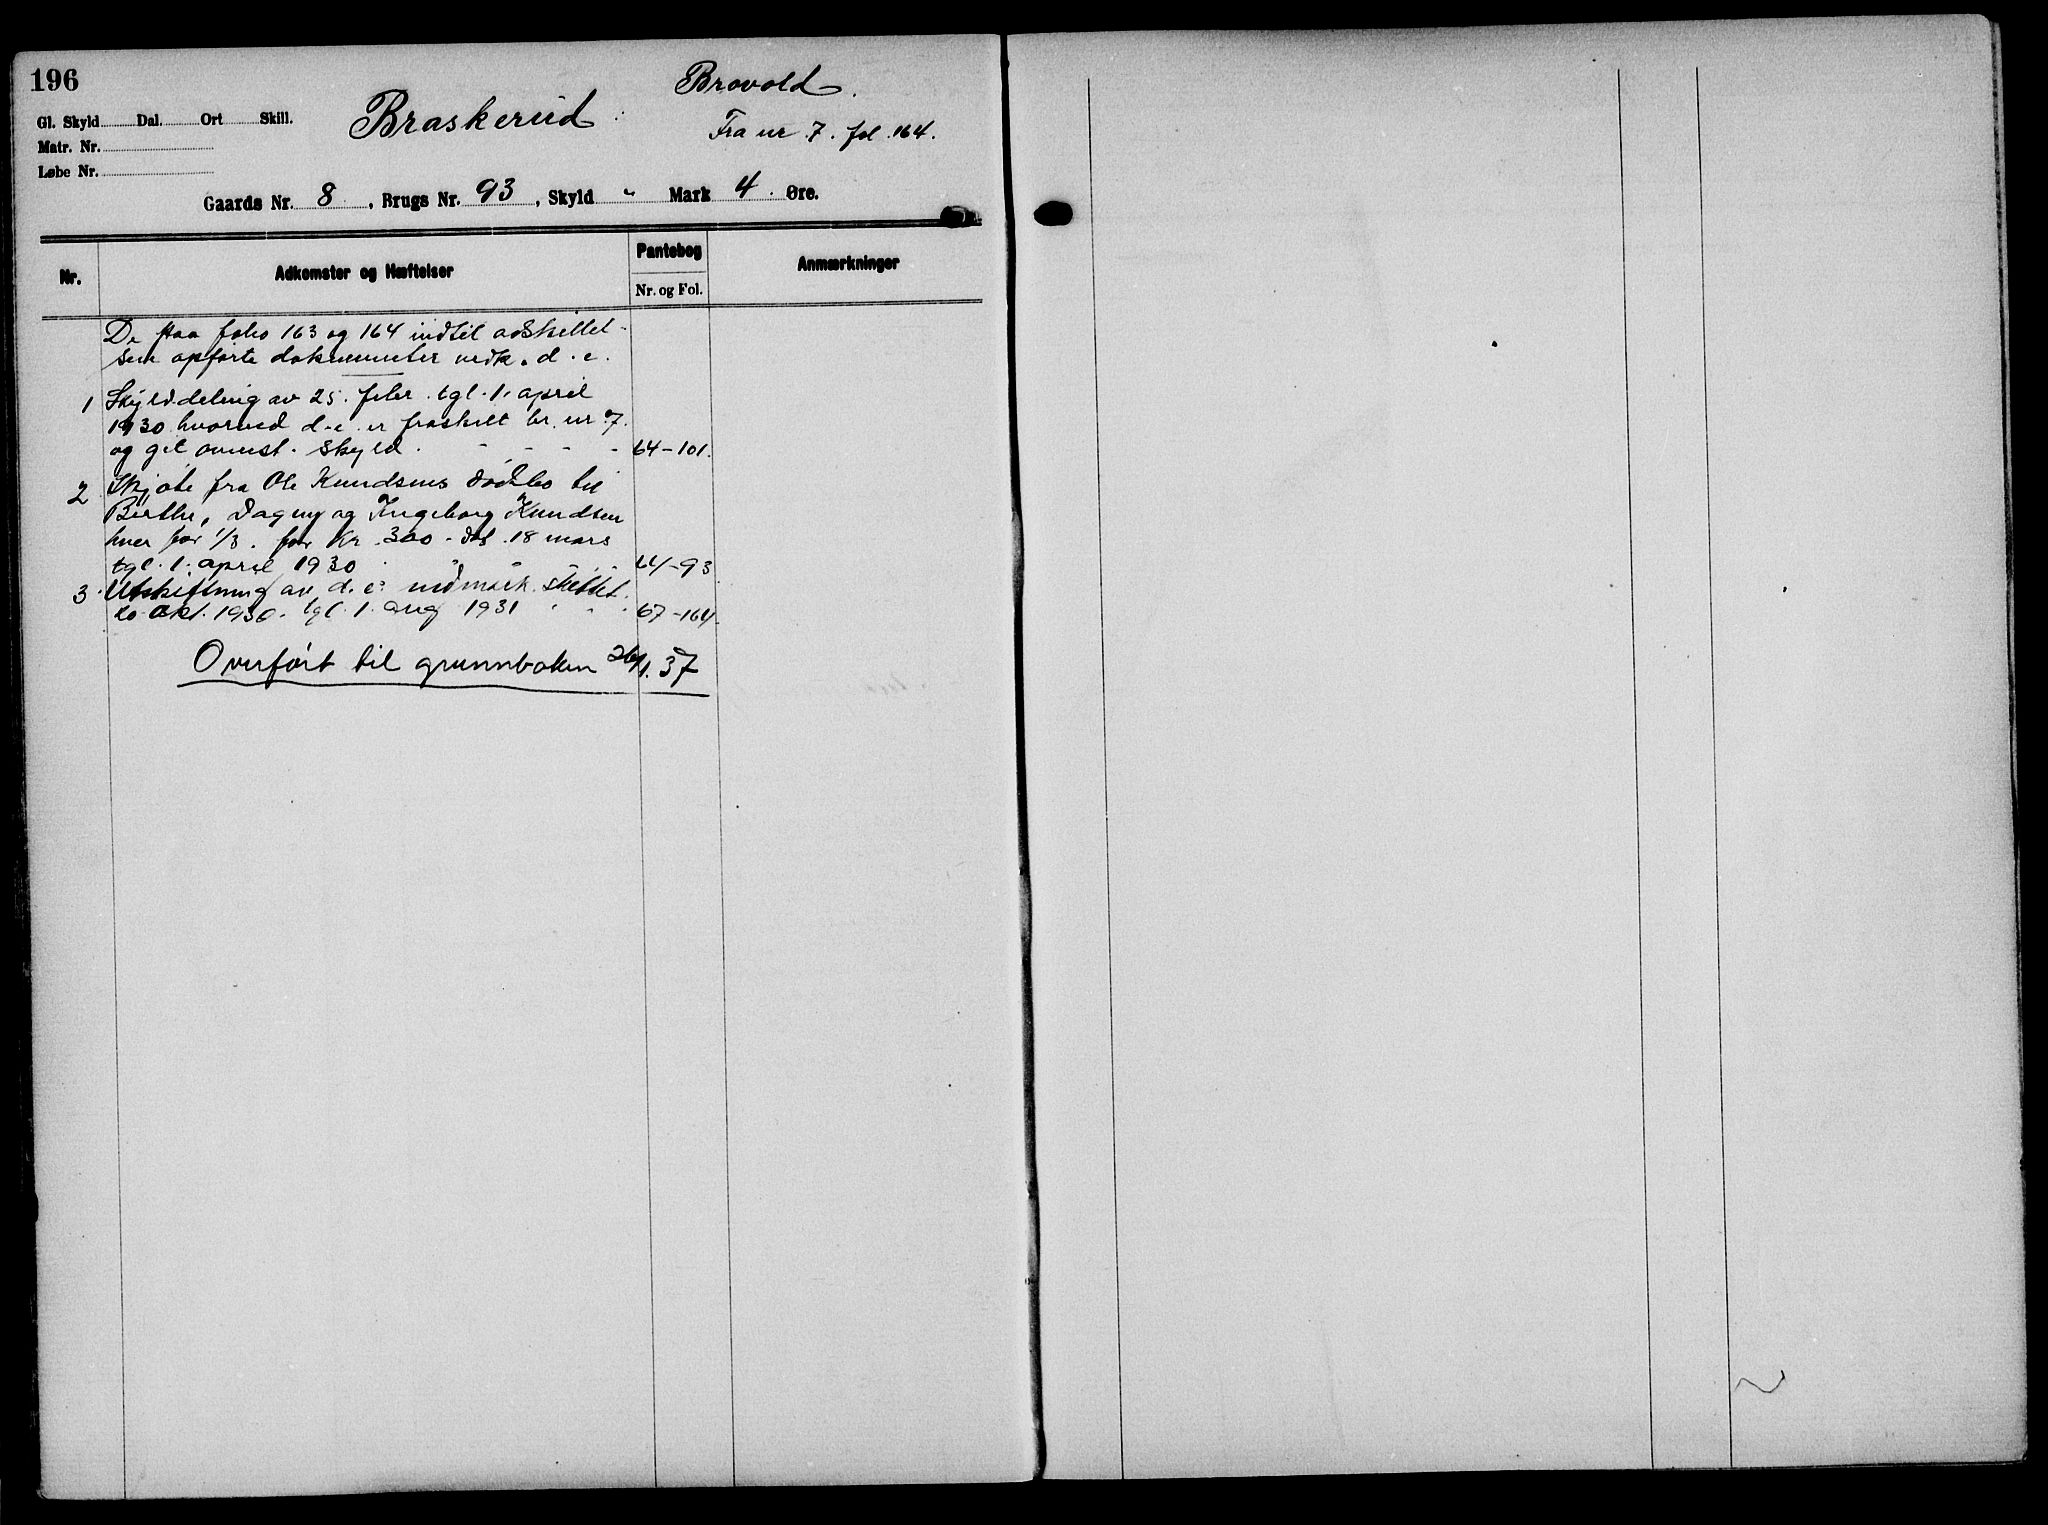 196
Braskerud
Brovold.
Fra nr 7. fol. 164.
Gl. Skyld Dal. Ort Skill.
Matr. Nr.
Løbe Nr.
Gaards Nr. 8, Brugs Nr. 93, Skyld " Mark 4. Øre.
Nr.
Adkomster og Hæftelser
Pantebog
Nr. og Fol.
Anmærkninger
De paa folio 163 og 164 indtil adskillel-
sen opførte dokumenter vedk. d. e.
1 Skylddeling av 25. febr. tgl. 1. april
1930 hvorved d. e. er fraskilt br. nr 7.
og git ovenst. skyld. - - - - 64-101.
2 Skjøte fra Ole Knudsens dødsbo til
Berthe, Dagny og Ingeborg Knudsen
hver for 1/3. for Kr. 300 - dat. 18 mars
tgl. 1. april 1930 64-93
3. Utskiftning av d. e. utmark sluttet
20 okt. 1930. tgl. 1. aug 1931 67-164.
Overført til grunnboken 26/1.37